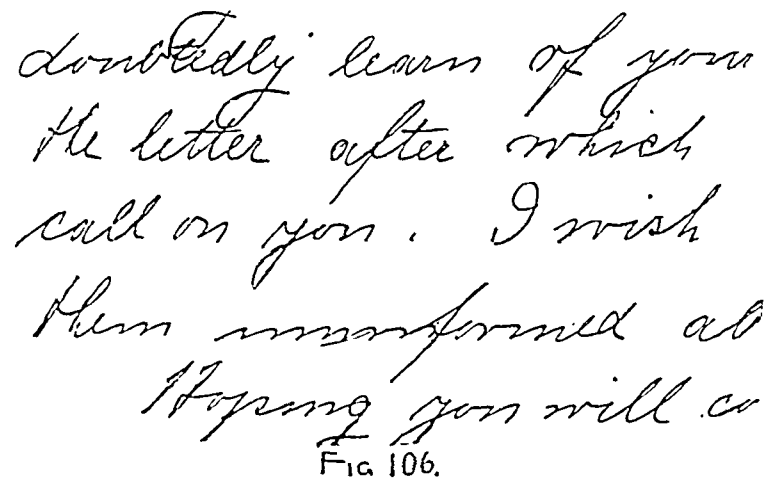 doubtedly learn of your
the letter after which
call on you. I wish
them uninformed ab
Hoping you will co
FIG 106.